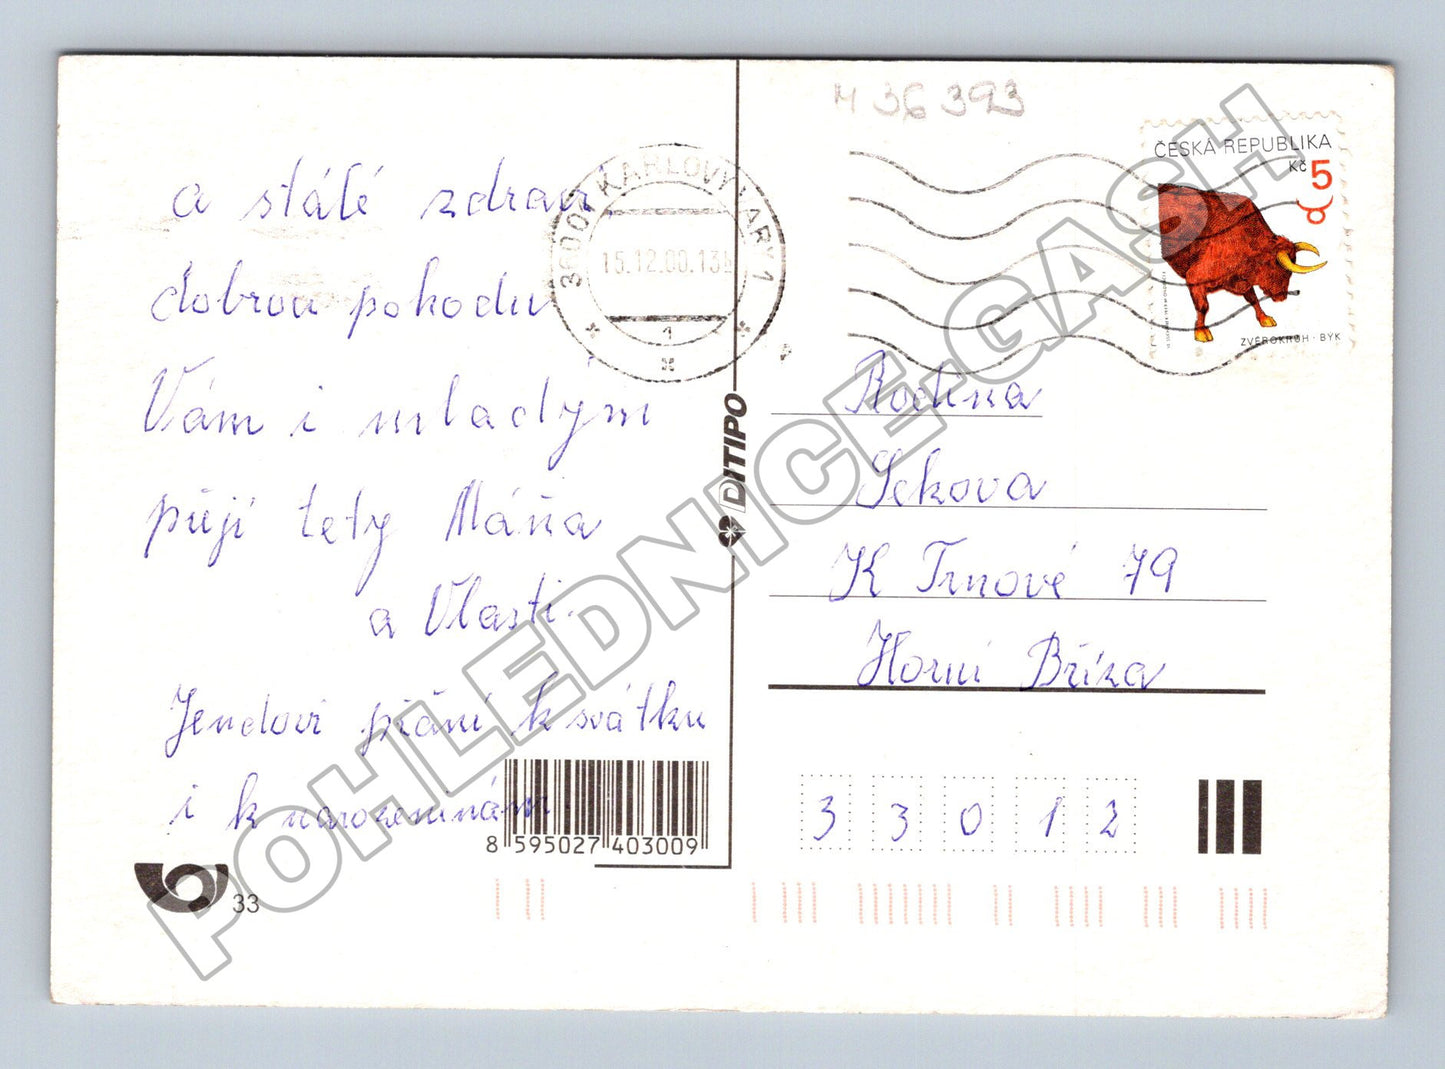 M 36 393
a stálé zdraví,
dobrou pohodu
Vám i mladým
přejí tety Máňa
a Vlasti.
Jendovi přání k svátku
i k narozeninám
8 595027 403009
33
360 01 KARLOVY VARY 1
15.12.00.13
1
DITIPO
ČESKÁ REPUBLIKA
Kč 5
ZVĚROKRUH · BÝK
Rodina
Sekova
K Trnové 79
Horní Bříza
3 3 0 1 2
POHLEDNICE-GASH